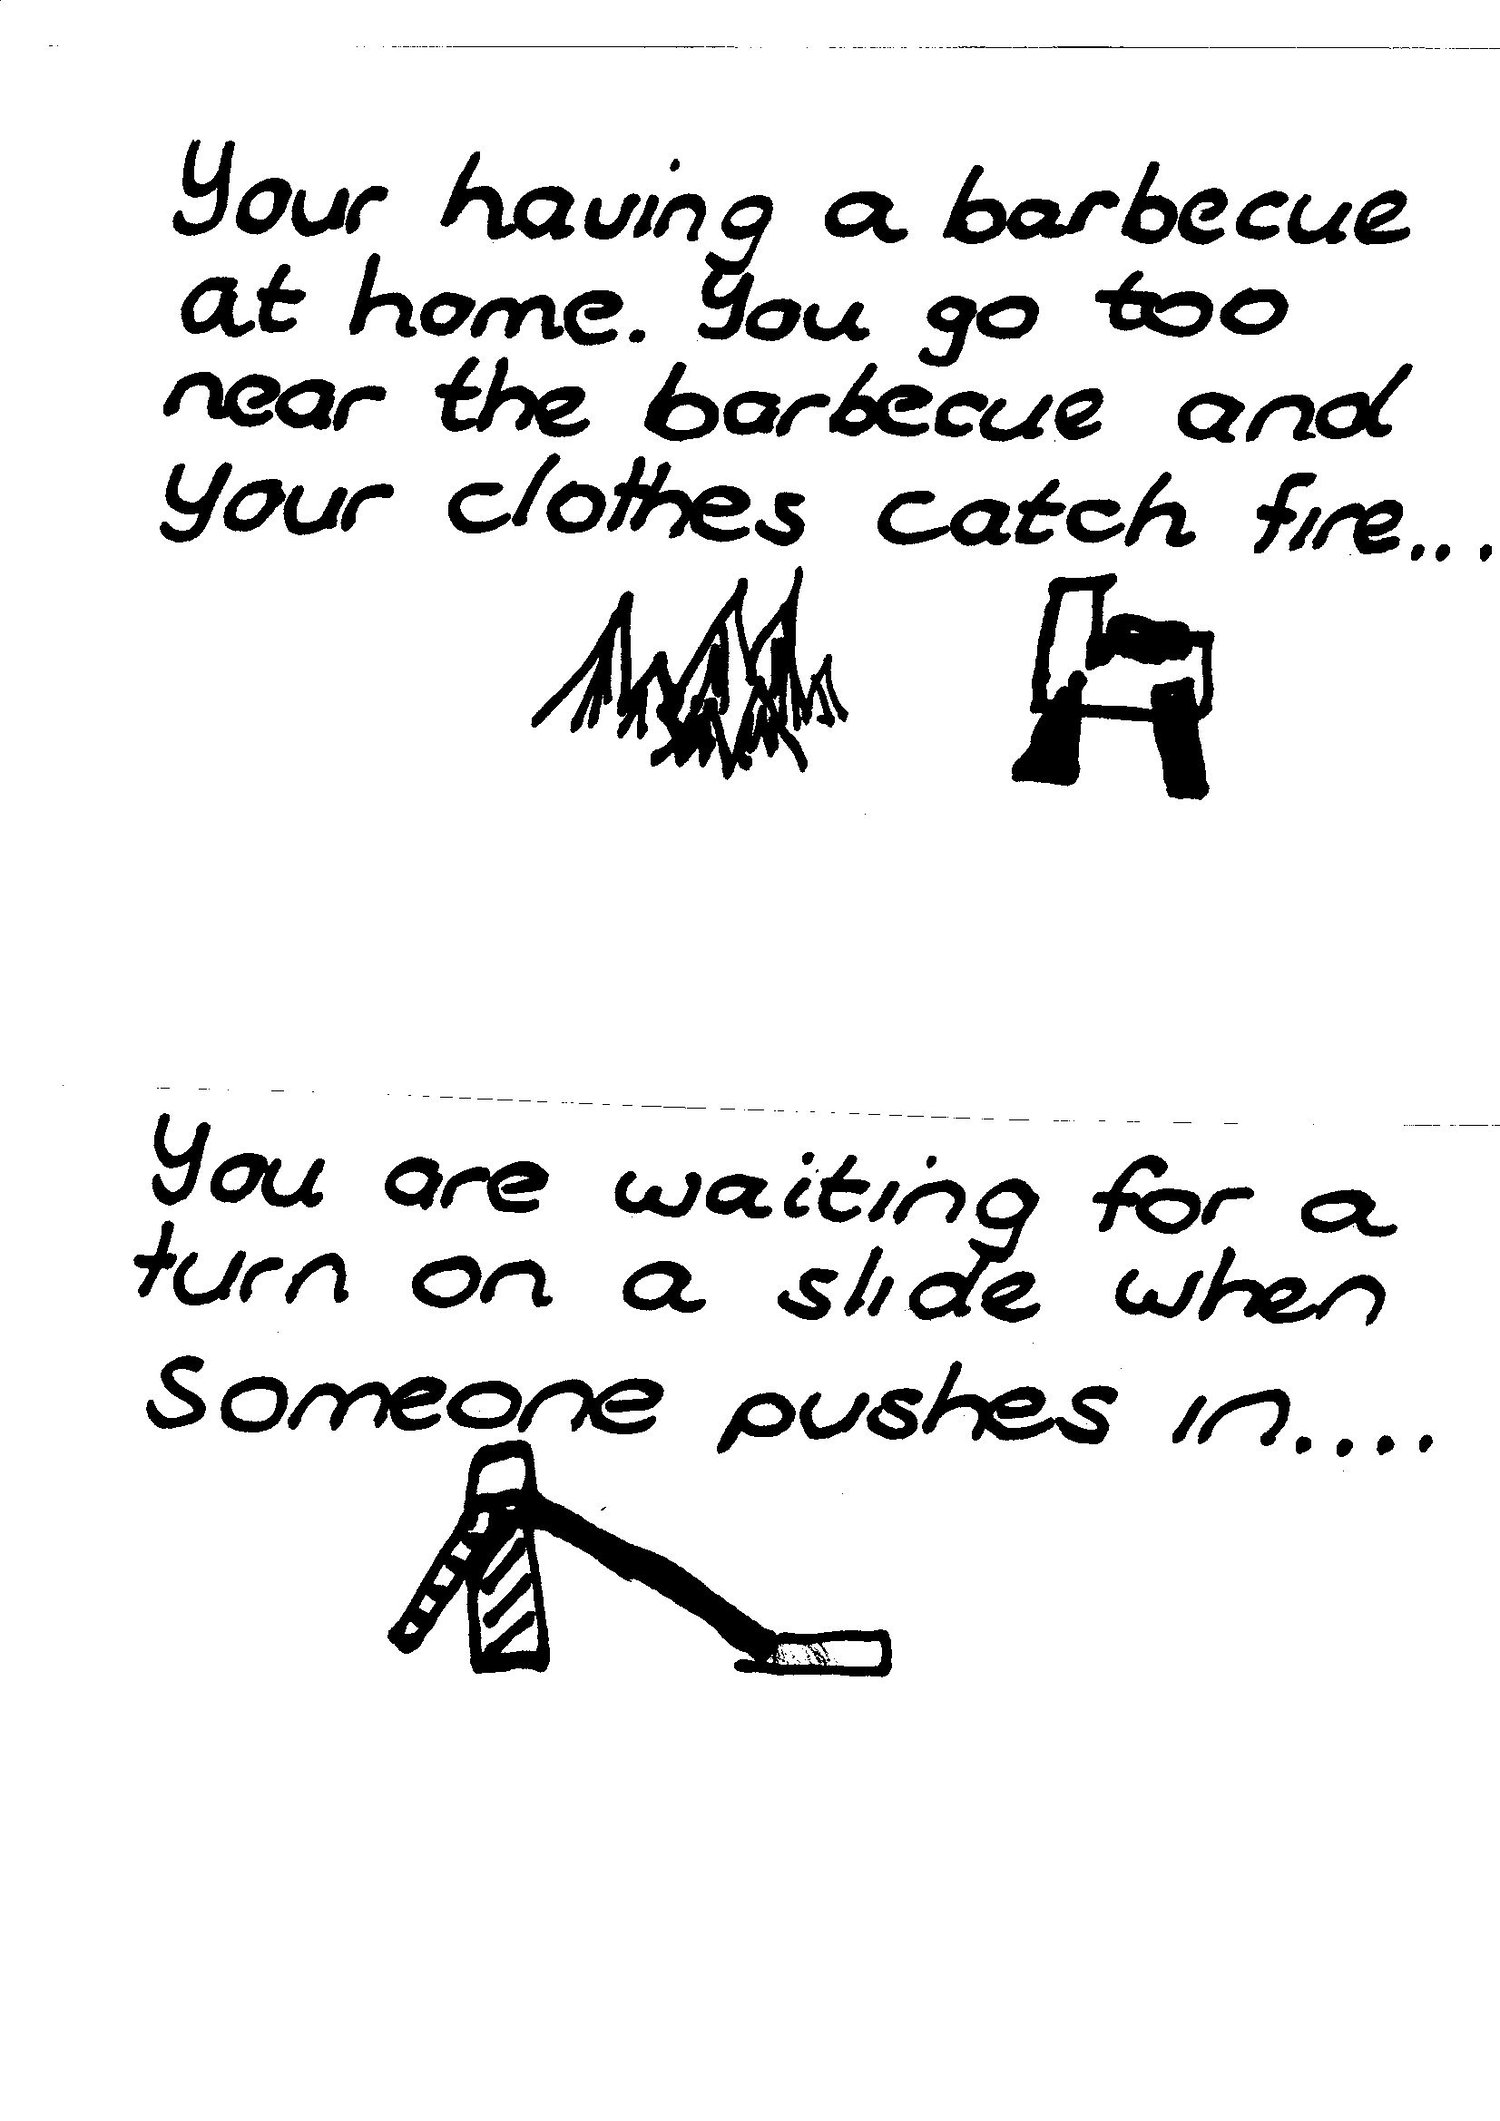 Your having a barbecue
at home. You go too
near the barbecue and
your clothes catch fire...
You are waiting for a
turn on a slide when
someone pushes in....